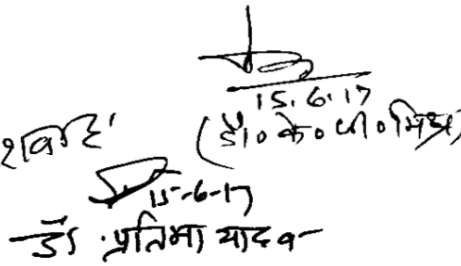 15.6.17
(डॉ० के० पी० मिश्रा)
15-6-17
डॉ. प्रतिमा यादव